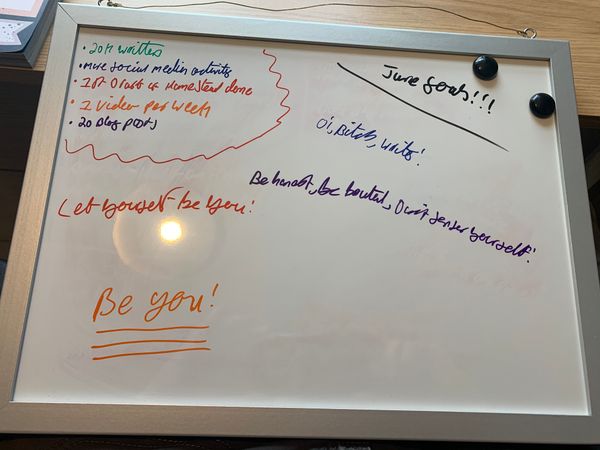 • 20k written
• More social media activity
• 1st Draft of Homestead done
• 1 video per week
• 20 Blog posts
June Goals!!!
Oi, Bitch, write!
Be honest, be brutal, Don't senser yourself!
Let yourself be you!
Be you!